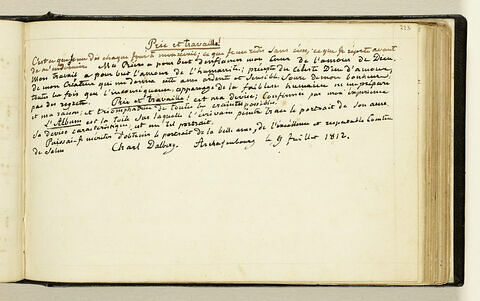 Prie et travaille!
C'est ce que je me dis chaque jour à mon réveil; ce que je me redis sans cesse; ce que je répète avant
de m'endormir. Ma Prière a pour but d'enflammer mon Cœur de l'amour de Dieu,
Mon travail a pour but l'amour de l'humanité; précepte du Céleste Dieu d'amour,
de mon Créateur qui me donna cette âme ardente et sensible, Source de mon bonheur,
toutes les fois que l'inconséquence, appanage de la faiblesse humaine ne me prépare
pas des regrets. Prie et travaille! est ma devise; Confirmée par mon expérience
et ma raison; et triomphatrice de toutes les craintes possibles.
L'Album est la Toile sur laquelle l'écrivain peintre trace le portrait de son âme,
Sa devise caractéristique est un tel portrait.
Puissai-je mériter d'obtenir le portrait de la belle âme, de l'excellente et respectable Comtesse
de Salm
Charl Dalberg. Aschafembourg le 9 Juillet 1812.
323